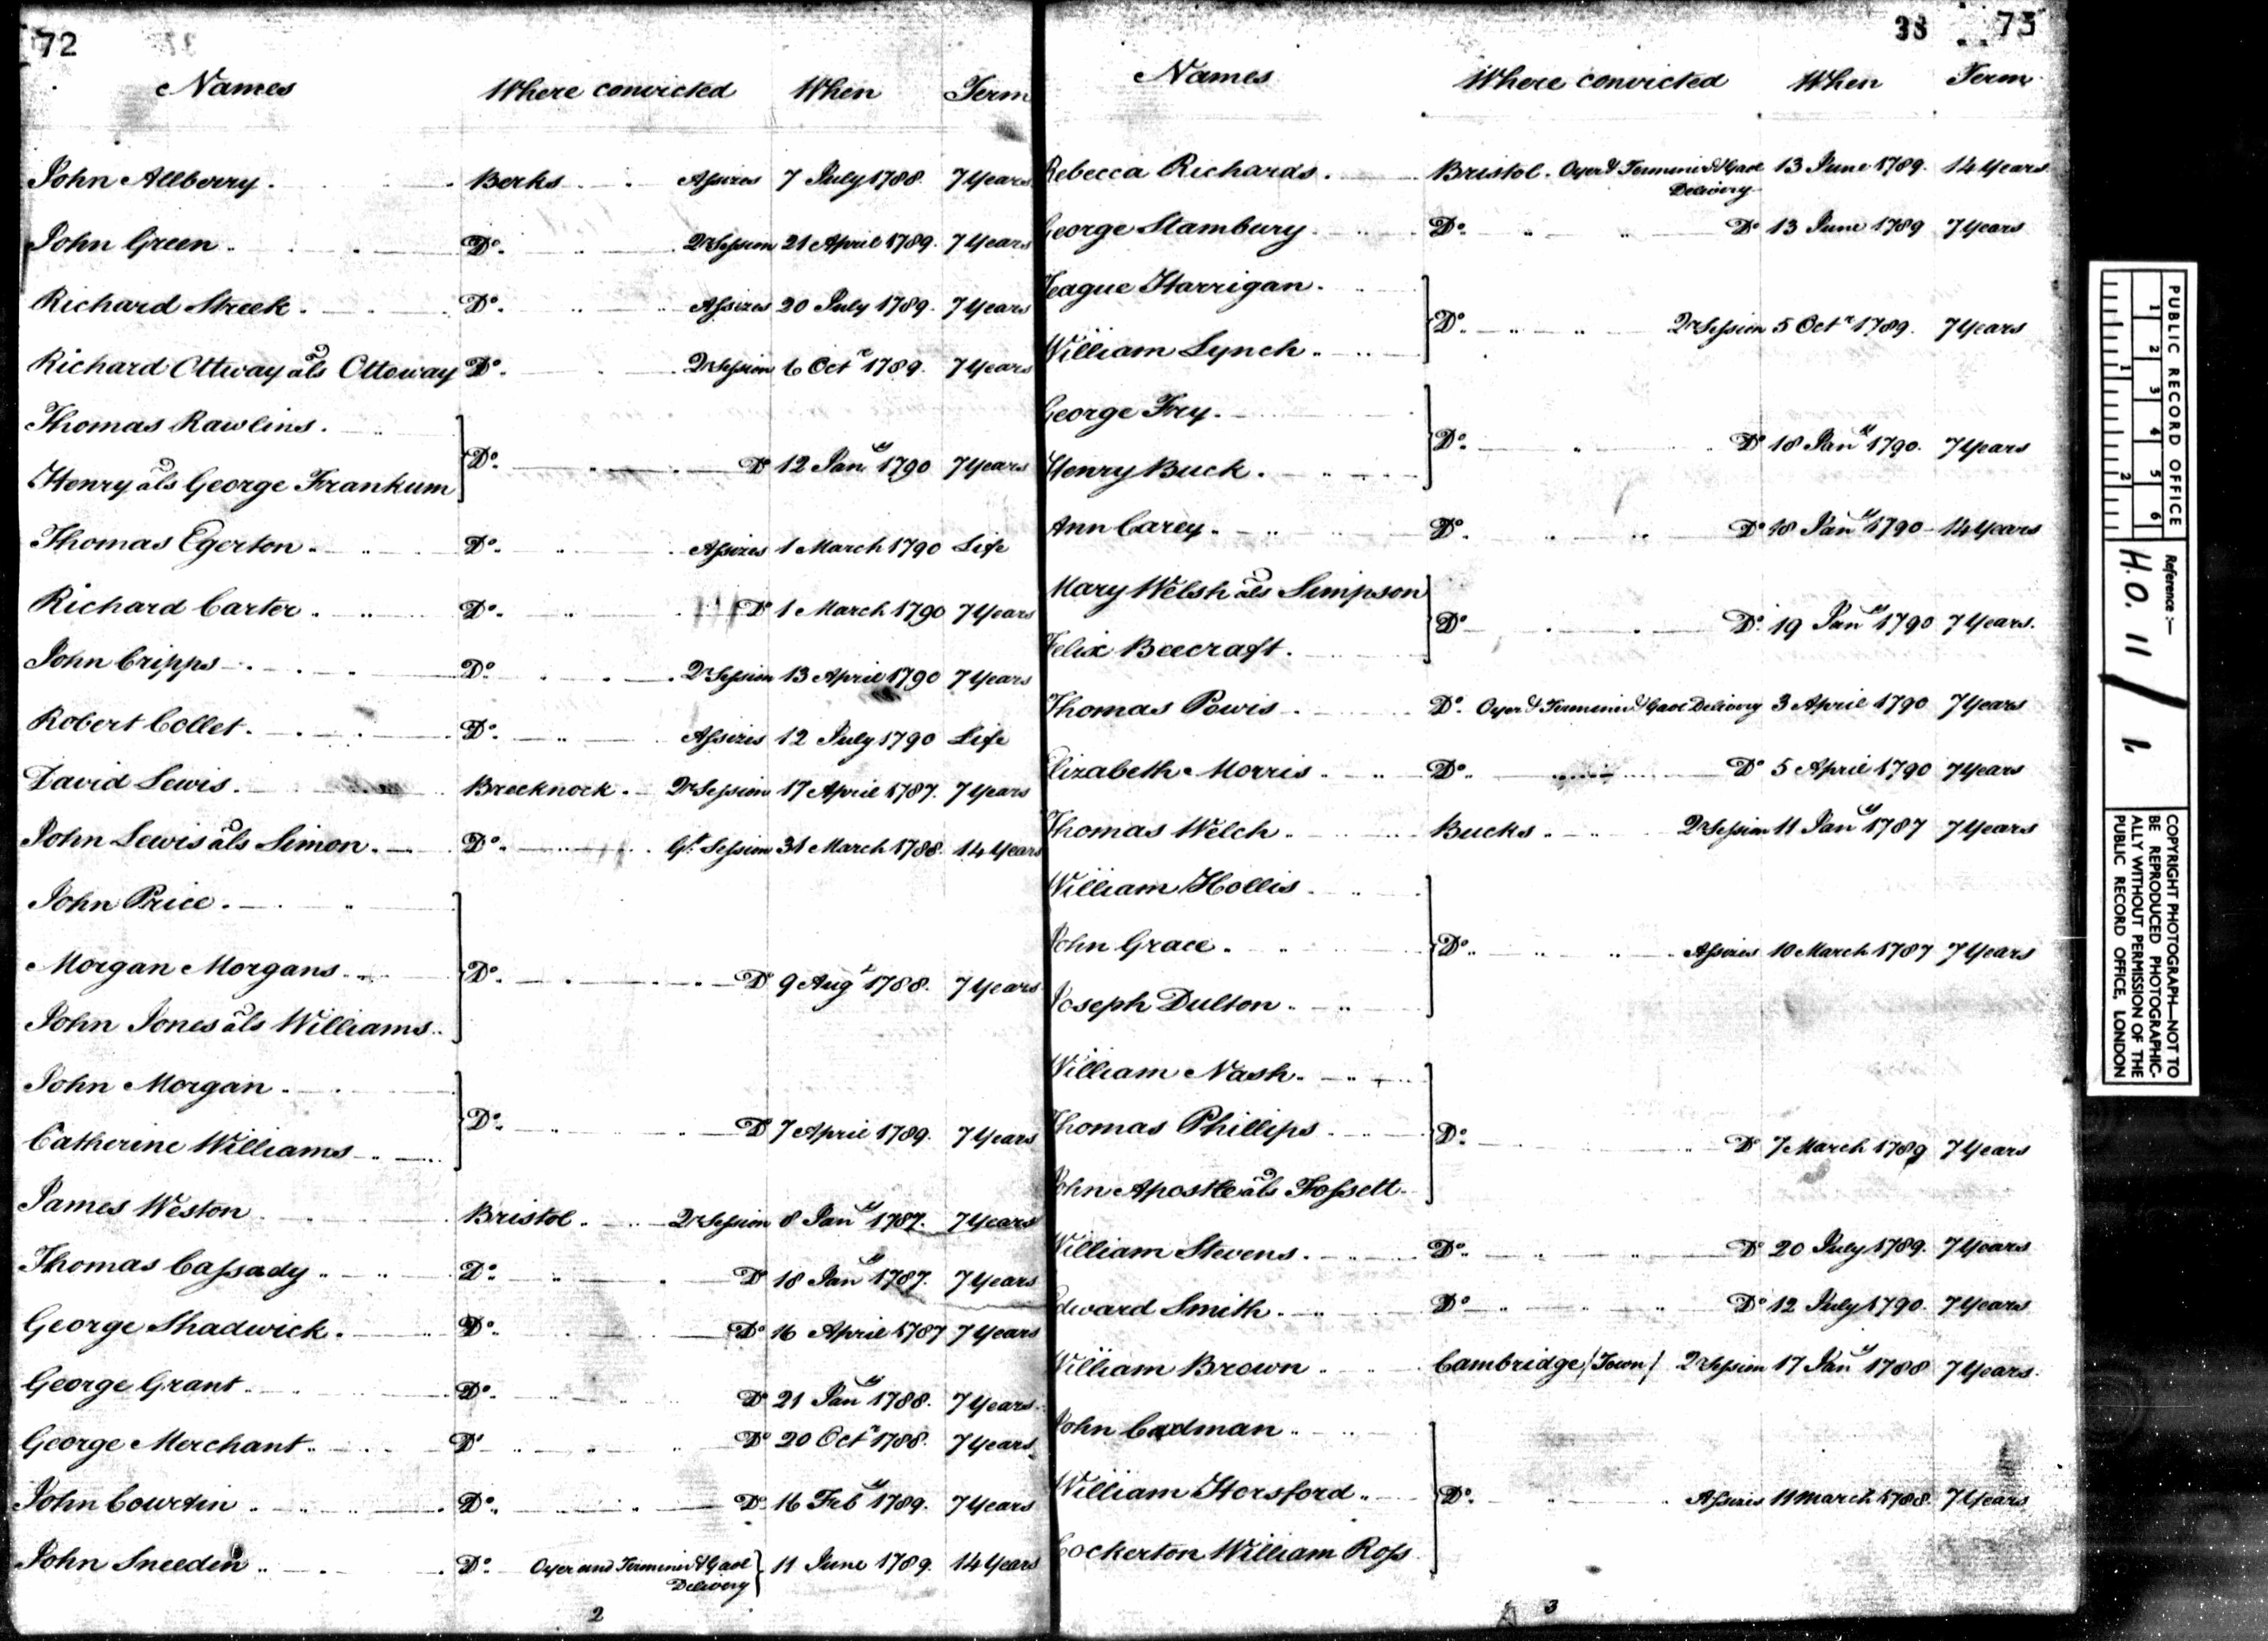 72
Names Where convicted When Term
John Allberry Berks Assizes 7 July 1788. 7 Years
John Green Do. Qr Session 21 April 1789. 7 Years
Richard Streek Do. Assizes 20 July 1789. 7 Years
Richard Ottway als Ottoway Do. Qr Session 6 Octr 1789. 7 Years
Thomas Rawlins.
Henry als George Frankum Do. Do 12 Jany 1790 7 Years
Thomas Egerton Do. Assizes 1 March 1790 Life
Richard Carter Do. Do 1 March 1790 7 Years
John Cripps Do. Qr Session 13 April 1790 7 Years
Robert Collet Do. Assizes 12 July 1790 Life
David Lewis Brecknock Qr Session 17 April 1787. 7 Years
John Lewis als Simon Do. Gt Session 31 March 1788. 14 Years
John Price
Morgan Morgans Do. Do 9 Augt 1788. 7 Years
John Jones als Williams
John Morgan
Catherine Williams Do. Do 7 April 1789. 7 Years
James Weston Bristol Qr Session 8 Jany 1787. 7 Years
Thomas Cassady Do. Do 18 Jany 1787. 7 Years
George Shadwick Do. Do 16 April 1787 7 Years
George Grant Do. Do 21 Jany 1788. 7 Years
George Merchant Do Do 20 Octr 1788. 7 Years
John Courtin Do. Do 16 Feby 1789. 7 Years
John Sneeden Do. Oyer and Terminer & Gaol Delivery 11 June 1789. 14 Years
2
38 73
Names Where convicted When Term
Rebecca Richards Bristol. Oyer & Terminer & Gaol Delivery 13 June 1789. 14 Years
George Stambury Do. Do 13 June 1789 7 Years
Teague Harrigan
William Lynch Do. Qr Session 5 Octr 1789. 7 Years
George Fry
Henry Buck Do. Do 18 Jany 1790. 7 Years
Ann Carey Do. Do 18 Jany 1790 14 Years
Mary Welsh als Simpson
Felix Beecraft Do. Do 19 Jany 1790 7 Years.
Thomas Powis Do. Oyer & Terminer & Gaol Delivery 3 April 1790 7 Years
Elizabeth Morris Do. Do 5 April 1790 7 Years
Thomas Welch Bucks Qr Session 11 Jany 1787 7 Years
William Hollis
John Grace Do. Assizes 10 March 1787 7 Years
Joseph Dulton
William Nash
Thomas Phillips Do. Do 7 March 1789 7 Years
John Apostle als Fossett
William Stevens Do. Do 20 July 1789. 7 Years
Edward Smith Do Do 12 July 1790. 7 Years
William Brown Cambridge (Town) Qr Session 17 Jany 1788 7 Years.
John Cadman
William Horsford Do. Assizes 11 March 1788. 7 Years
Cockerton William Ross
3
PUBLIC RECORD OFFICE
1 2 3 4 5 6
1 2
Reference :-
H.O. 11 / 1.
COPYRIGHT PHOTOGRAPH—NOT TO
BE REPRODUCED PHOTOGRAPHIC-
ALLY WITHOUT PERMISSION OF THE
PUBLIC RECORD OFFICE, LONDON